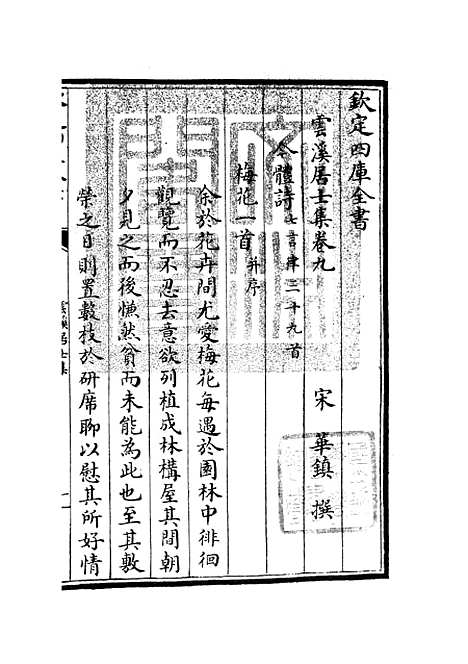 欽定四庫全書
雲溪居士集卷九
宋 華鎮 撰
今體詩七言律三十九首
梅花一首并序
余於花卉間尤愛梅花每遇於園林中徘徊
觀覽而不忍去意欲列植成林構屋其間朝
夕見之而後慊然貧而未能為此也至其敷
榮之日則置數枝於研席聊以慰其所好情